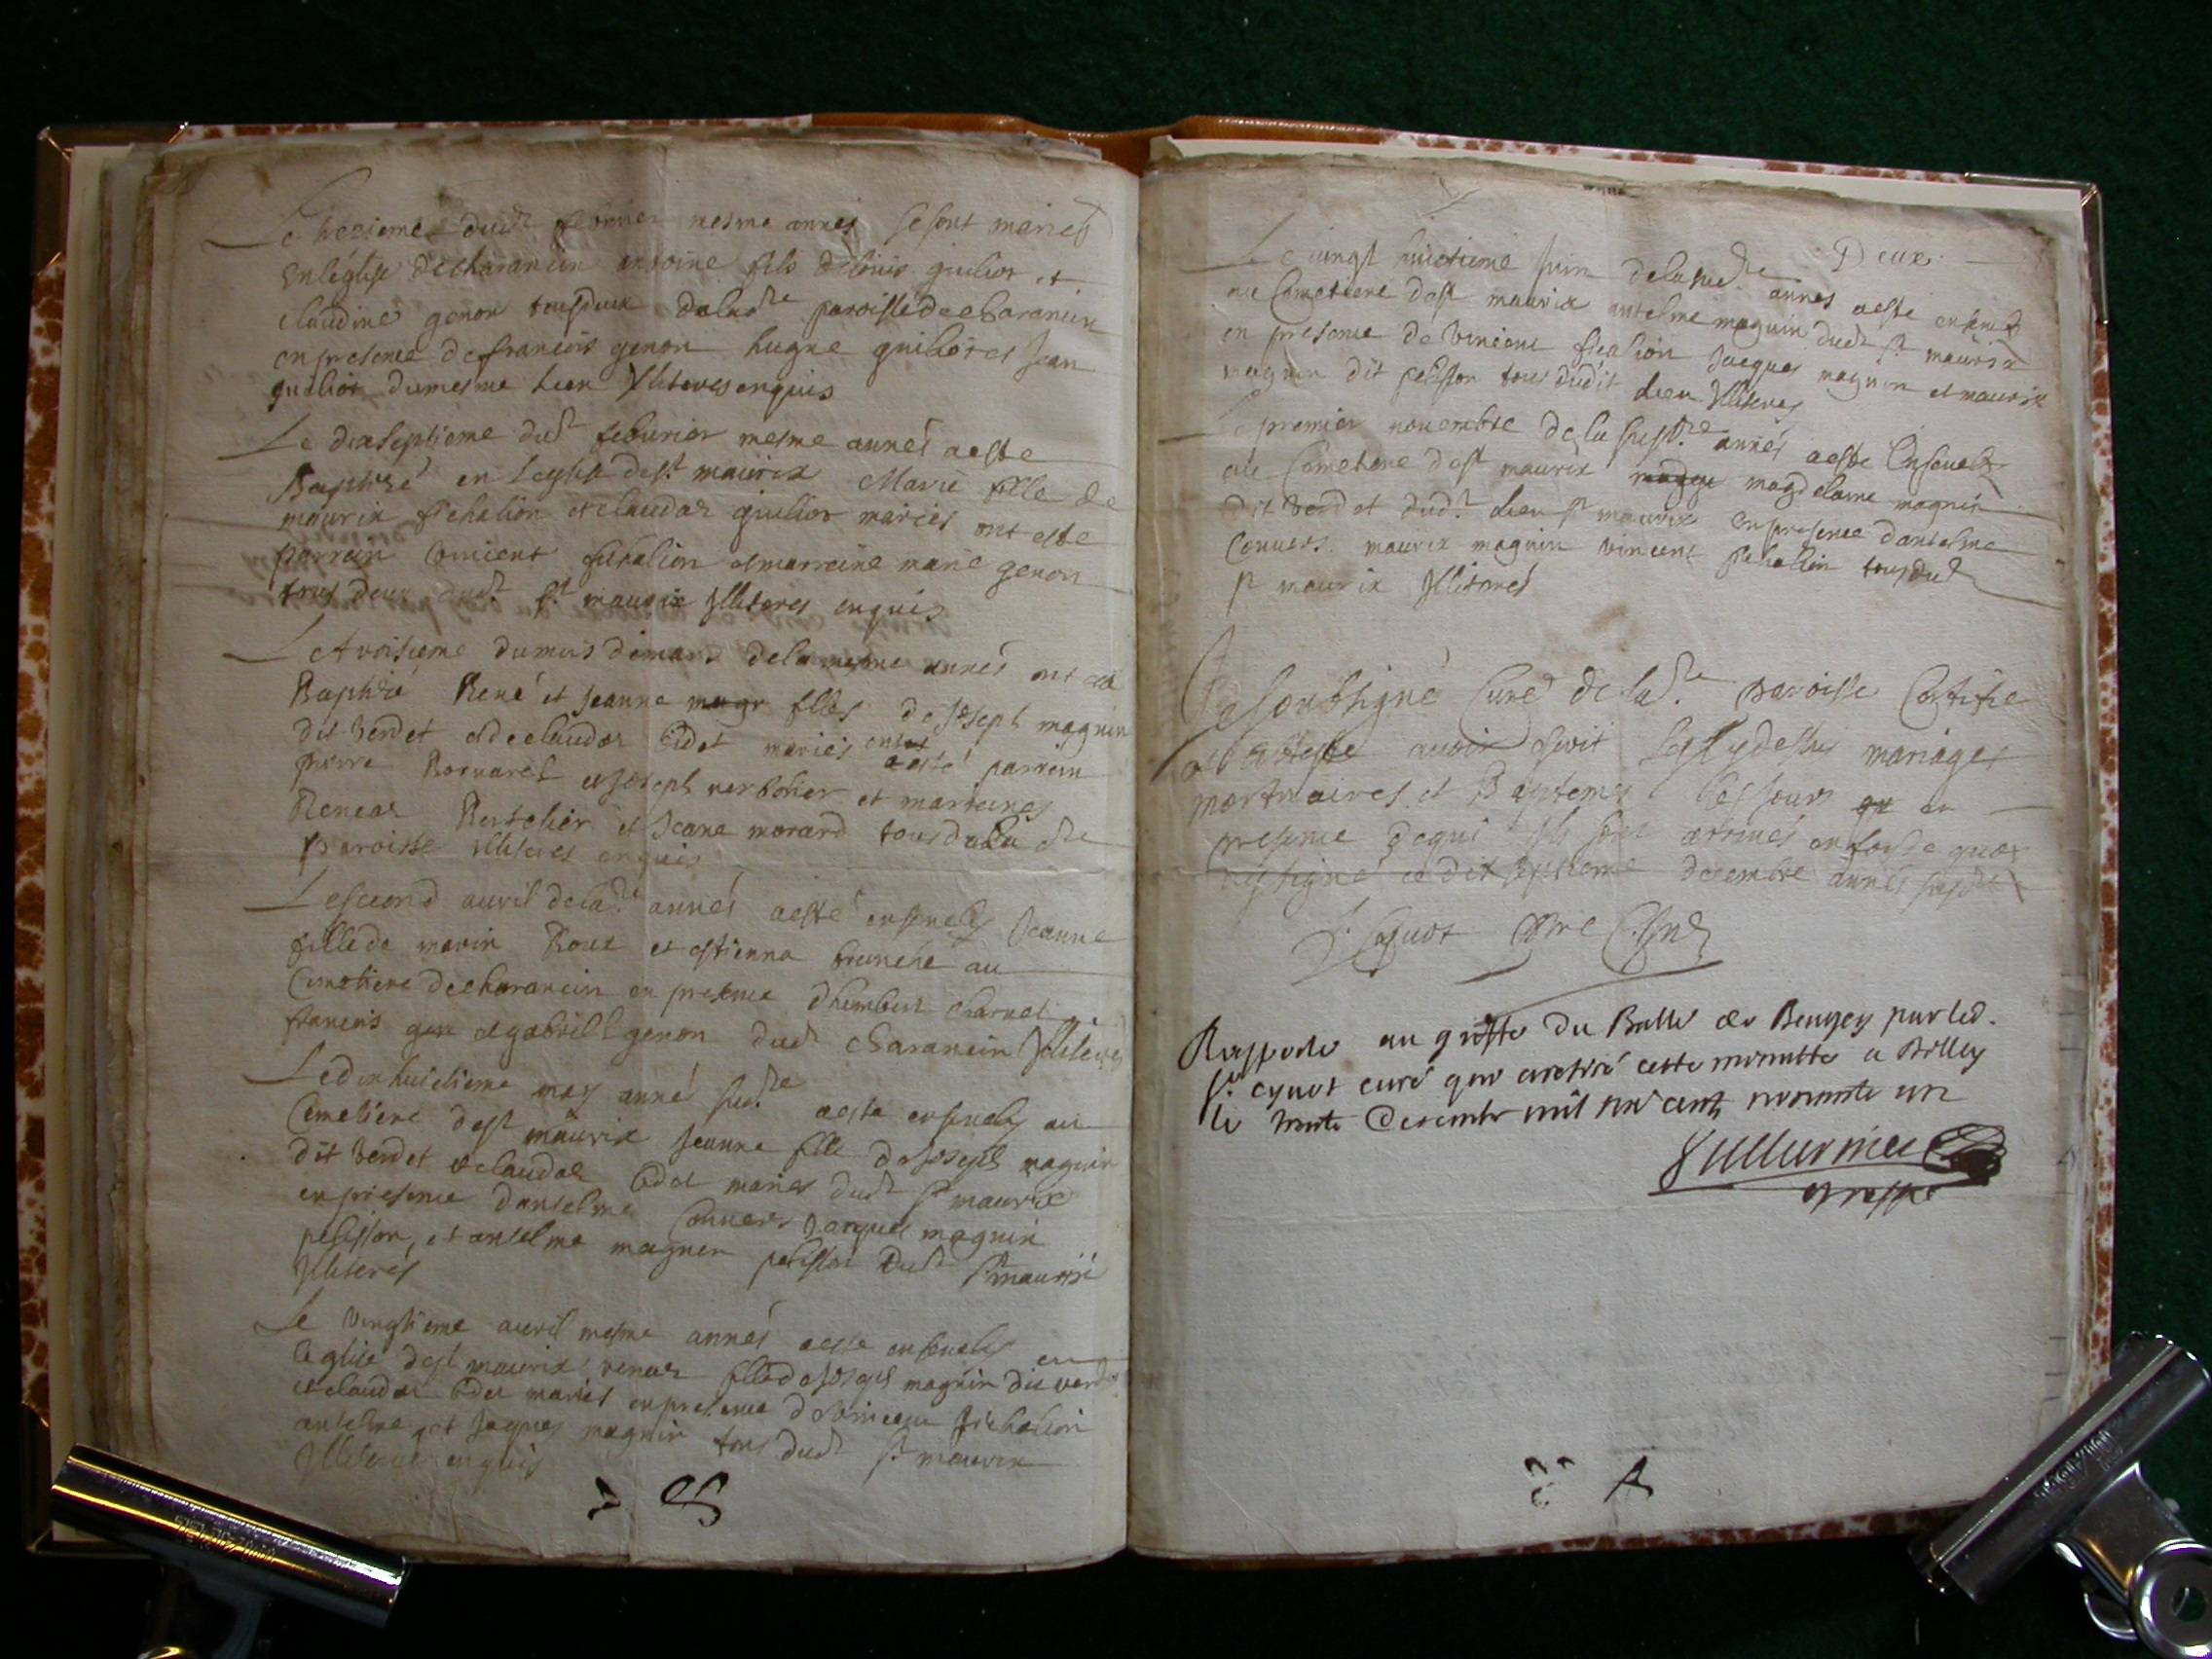 Le treisieme dudt febvrier mesme anneé se sont mariés
en léglise de charancin antoine fils de louis guiliot et
claudine genon tous deux de ladte paroisse de charancin
en presence de francois genon hugue guiliot et Jean
guiliot du mesme lieu Illiteres enquis
Le dixseptieme dudt febvrier mesme anneé a esté
Baptizé en leglise de st maurix Marie fille de
maurix fichalion et claudaz guiliot mariés ont esté
parrain vincent fichalion et marraine marie genon
tous deux dudt st maurix Illiteres enquis
Le troisieme du mois de mars de la mesme anneé ont esté
Baptizé René et Jeanne magn filles de Joseph magnin
dit verdet et de claudaz Odet mariés ont esté parrein
pierre Bornarel et Joseph verbouier et marreines
Reneaz Bertelier et Jeane morard tous de la dte
paroisse Illiteres enquis
Le second auril de ladte anneé a esté ensevely Jeanne
fille de marin Roux et estienna brunché au
Cimetiere de charancin en presence dhumbert charvet
francois gen et gabriell genon dudt charancin Illiteres
Le dixhuictieme may anneé susdte a esté ensevely au
Cemetiere de st maurix Jeanne fille de Joseph magnin
dit verdet et claudaz Odet mariés dudt st maurix
en presence dantelme Convers Jacques magnin
pelisson, et antelme magnin pelisson dudt st maurix
Illiterés
Le vingtieme auril mesme anneé a esté ensevely en
leglise de st maurix reneaz fille de Joseph magnin dit verdet
et claudaz Odet mariés en presence de vincent fichalion
antelme et Jaques magnin tous dudt st maurix
Illiteres enquis
Deux
Le vingt huictieme Juin de la sudte anneé a esté ensevely
au Cemetiere de st maurix antelme magnin dudt st maurix
en presence de vincent fichalion Jacques magnin et maurix
magnin dit pelisson tous dudit lieu Illiteres
Le premier novembre de la susdte anneé a esté Ensevely
au Cemetiere de st maurix magde magdelaine magnin
dit verdet dudt lieu st maurix en presence dantelme
Convers maurix magnin vincent fichalion tous dudt
st maurix Illiteres
Je soubsigné Curé de ladte paroisse Certifie
et atteste avoir escrit les cy dessus mariages
mortuaires et Baptemes les jours en
presence de qui ils sont arrivés en foy de quoy
ay signé ce dix septieme decembre anneé susdte
J. Cquot Curé
Rapporté au greffe du Balle de Beugey par led.
sr. cynot curé qui a retiré cette minutte a Belley
le trente Decembre mil six cent nonante un
greffe